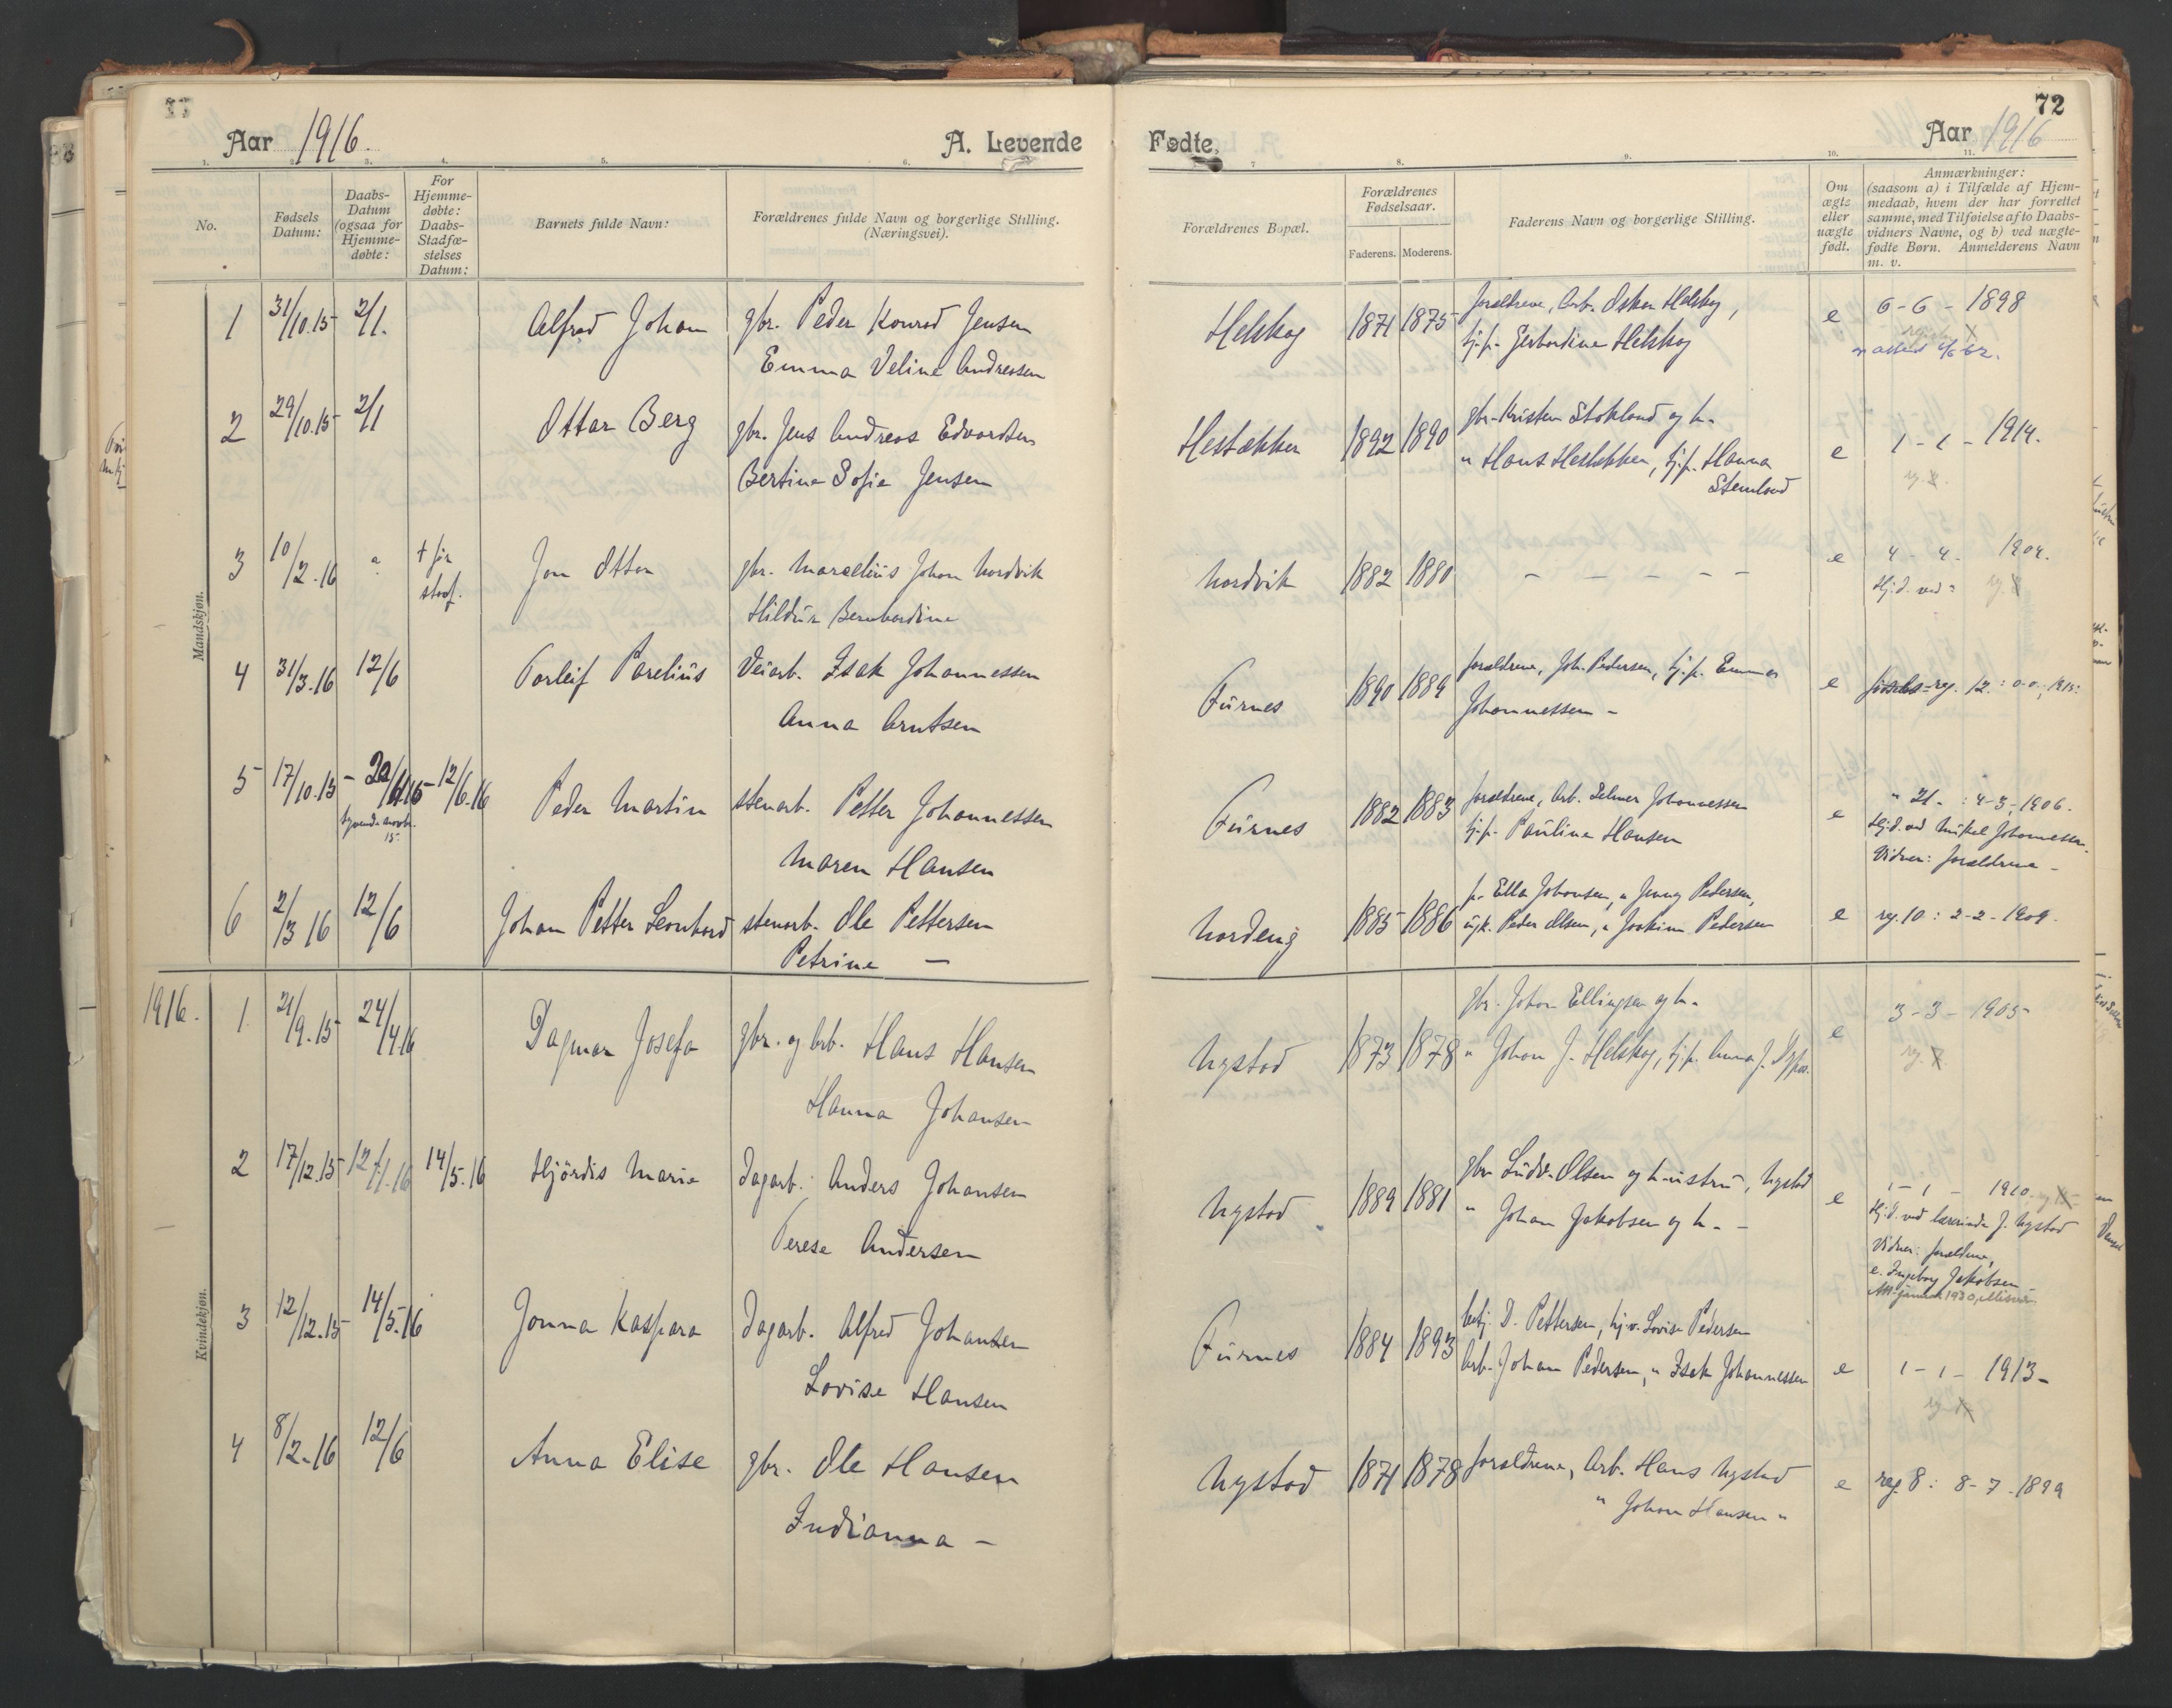 72
Aar 1916.
A. Levende
Fødte,
Aar 1916
1. 2. 3. 4. 5. 6.
7 8. 9. 10. 11.
No.
Fødsels Datum:
Daabs-Datum (ogsaa for Hjemme-døbte:
For Hjemme-døbte: Daabs-Stadfæ-stelses Datum:
Barnets fulde Navn:
Forældrenes fulde Navn og borgerlige Stilling. (Næringsvei).
Forældrenes Bopæl.
Forældrenes Fødselsaar.
Faderens. Moderens.
Faderens Navn og borgerlige Stilling.
Om ægte eller uægte født.
Anmærkninger: (saasom a) i Tilfælde af Hjem-medaab, hvem der har forrettet samme, med Tilføielse af to Daabs-vidners Navne, og b) ved uægte-fødte Børn. Anmelderens Navn m. v.
Mandskjøn.
1 31/10.15 2/1. Alfred Johan gbr. Peder Konrad Jensen
Emma Veline Andreasen
Helskog 1871 1875 forældrene, Arb. Oskar Helskog,
tj.p. Gerhardine Helskog
e 6-6-1898
2 29/10.15 2/1 Ottar Berg gbr. Jens Andreas Edvardsen
Bertine Sofie Jensen
Hestbakken 1892 1890 gbr. Kristen Stokland og h.
" Hans Hestbakken, tj.p. Hanna
Stenland
e 1-1-1914.
3 10/2.16 " + før
stadf.
Jon Otton gbr. Marselius Johan Nordvik
Hildur Bernhardine
Nordvik 1882 1880 - - - - -
e 4-4-1904.
Hj.d. ved "
4 31/3.16 12/6 Torleif Parelius Veiarb. Isak Johannessen
Anna Arntsen
Furnes 1890 1889 forældrene, Joh. Pedersen, tj.p. Emma
Johannessen -
e fødsels-reg. 12
5 17/10.15 - 20/11 15 - 12/6.16
tyvende novbr.
15
Peder Martin stenarb. Petter Johannessen
Maren Hansen
Furnes 1882 1883 forældrene, Arb. Johannessen
tj.p. Pauline Hansen
e " 21. : 4-3-1906.
Hj.d. ved Mikal Johannessen.
Vidner: forældrene -
6 2/3 16 12/6 Johan Petter Leonhard stenarb. Ole Pettersen
Petrine -
Nordeng 1885 1886 p. Ella Johansen, " Jenny Pedersen,
ugk. Peder Olsen, " Joakim Pedersen
e reg. 10 : 2-2-1909.
1916.
Kvindekjøn.
1 21/9.15 24/4.16 Dagmar Josefa gbr. og Arb. Hans Hansen
Hanna Johansen
Nystad 1873 1878 gbr. Johan Ellingsen og h.
" Johan J. Helskog, tj.p. Anna J.
e 3-3-1905
2 17/12.15 12/1.16 14/5.16 Hjördis Marie Dagarb. Anders Johansen
Terese Andersen
Nystad 1889 1881 gbr. Ludv. Olsen og h-ustru, Nystad
" Johan Jakobsen og h. -
e 1-1-1910.
Hj.d. ved lærerinde J. Nystad
Vidner: forældrene,
e. Ingeborg Jakobsen
3 12/12.15 14/5.16 Jonna Kaspara Dagarb. Alfred Johansen
Lovise Hansen
Furnes 1884 1893 betj. D. Pettersen, tj.p. Lovise Pedersen
Arb. Johan Pedersen, " Isak Johannessen
e 1-1-1913-
4 8/2.16 12/6 Anna Elise gbr. Ole Hansen
Indianna -
Nystad 1871 1878 forældrene, Arb. Hans Nystad
" Johan Hansen "
e reg. 8 : 8-7-1899